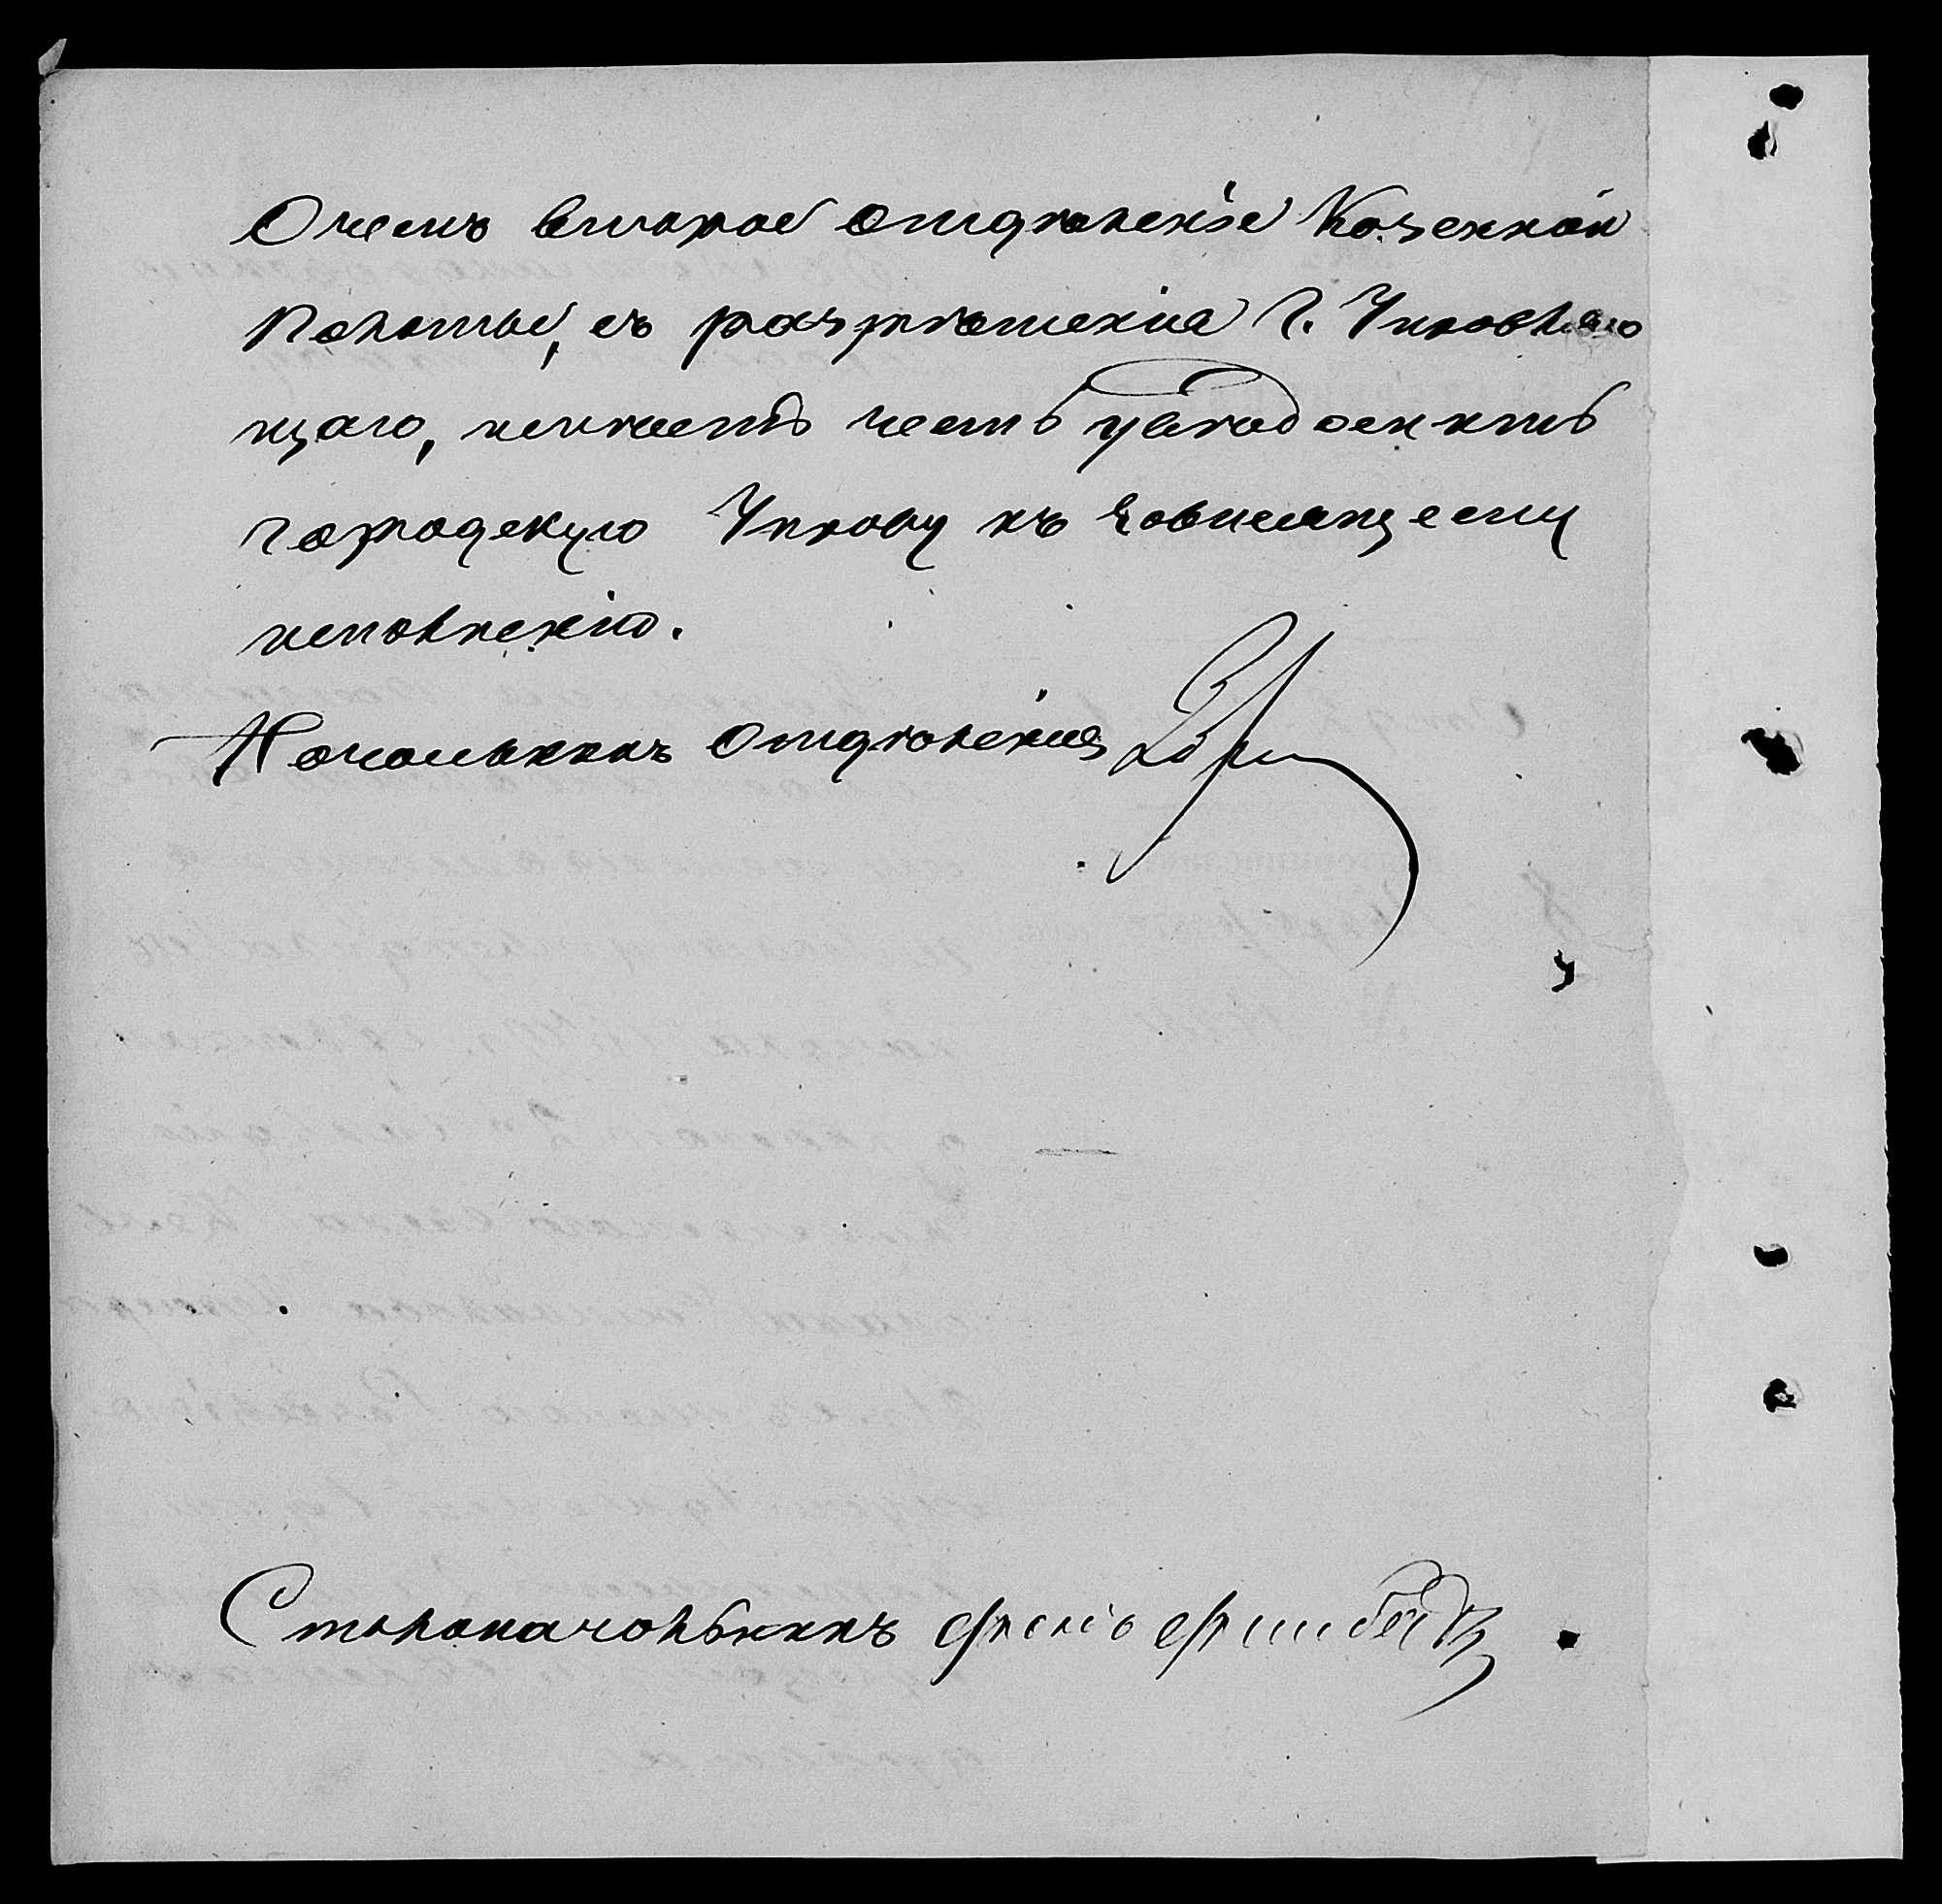 О чемъ второе отдѣленіе Казенной
Палаты, съ разрѣшенія Г. Управляю
щаго, имѣетъ честь увѣдомить
городскую Управу къ зависящему
исполненію.
Начальникъ отдѣленія
Столоначальникъ